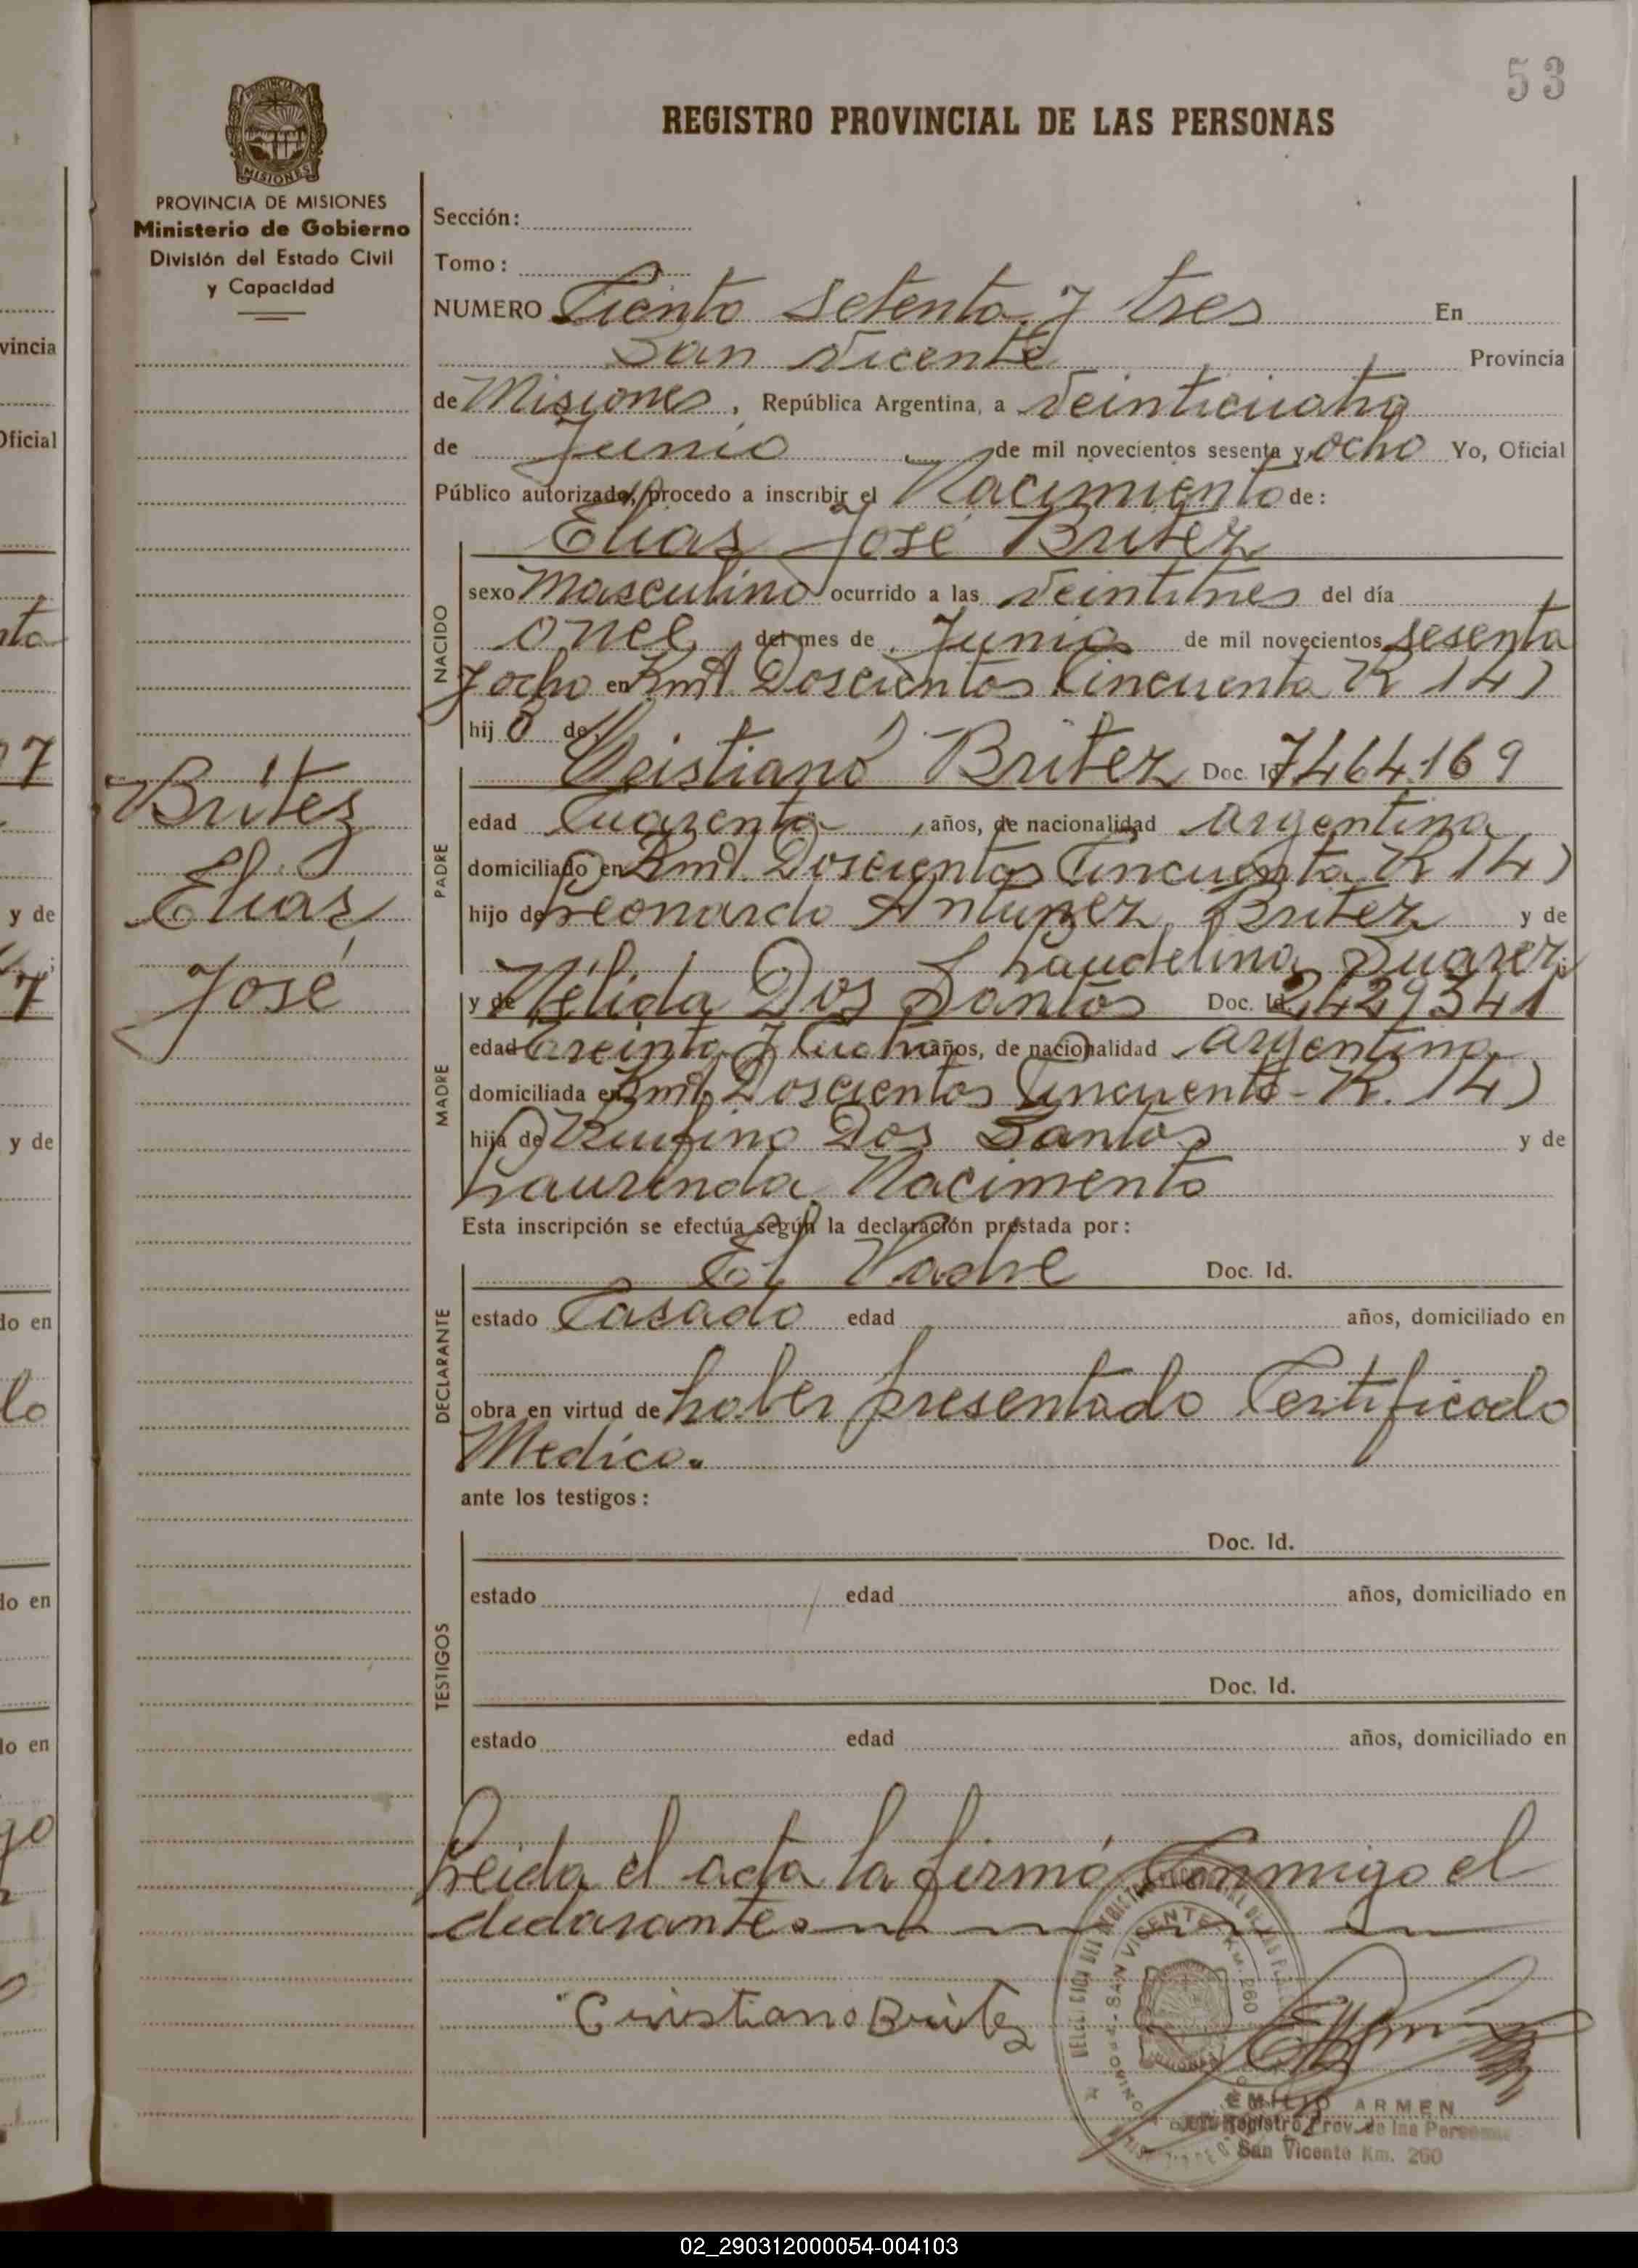 53
REGISTRO PROVINCIAL DE LAS PERSONAS
PROVINCIA DE MISIONES
Ministerio de Gobierno
División del Estado Civil
y Capacidad
Sección:
Tomo:
NUMERO Ciento Setenta y tres En
San Vicente Provincia
de Misiones, República Argentina, a Veinticuatro
de Junio de mil novecientos sesenta y ocho Yo, Oficial
Público autorizado, procedo a inscribir el Nacimiento de:
Elias José Britez
NACIDO
sexo Masculino ocurrido a las Veintitres del día
once del mes de Junio de mil novecientos sesenta
y ocho en Kmt. Doscientos Cincuenta R 14)
hijo de
Cristiano Britez Doc. Id. 7464169
PADRE
edad Cuarenta, años, de nacionalidad argentina
domiciliado en Kmt. Doscientos Cincuenta R 14)
hijo de Leonardo Antunez Britez y de
Laudelina Suarez
y de Nélida Dos Santos Doc. Id. 2429341
MADRE
edad treinta y Cuatro años, de nacionalidad argentina
domiciliada en Kmt. Doscientos Cincuenta - R. 14)
hija de Rufino Dos Santos y de
Laurinda Nacimento
Esta inscripción se efectúa según la declaración prestada por:
El Padre Doc. Id.
DECLARANTE
estado Casado edad años, domiciliado en
obra en virtud de haber presentado Certificado
Medico.
ante los testigos:
TESTIGOS
Doc. Id.
estado edad años, domiciliado en
Doc. Id.
estado edad años, domiciliado en
Leida el acta la firmó Conmigo el
declarante.
Cristiano Britez
Britez
Elias
José
SAN VICENTE KM. 260
EMILIO ARMEN
Registro Prov. de las Personas
San Vicente Km. 260
vincia
Oficial
y de
y de
do en
do en
do en
02_290312000054-004103